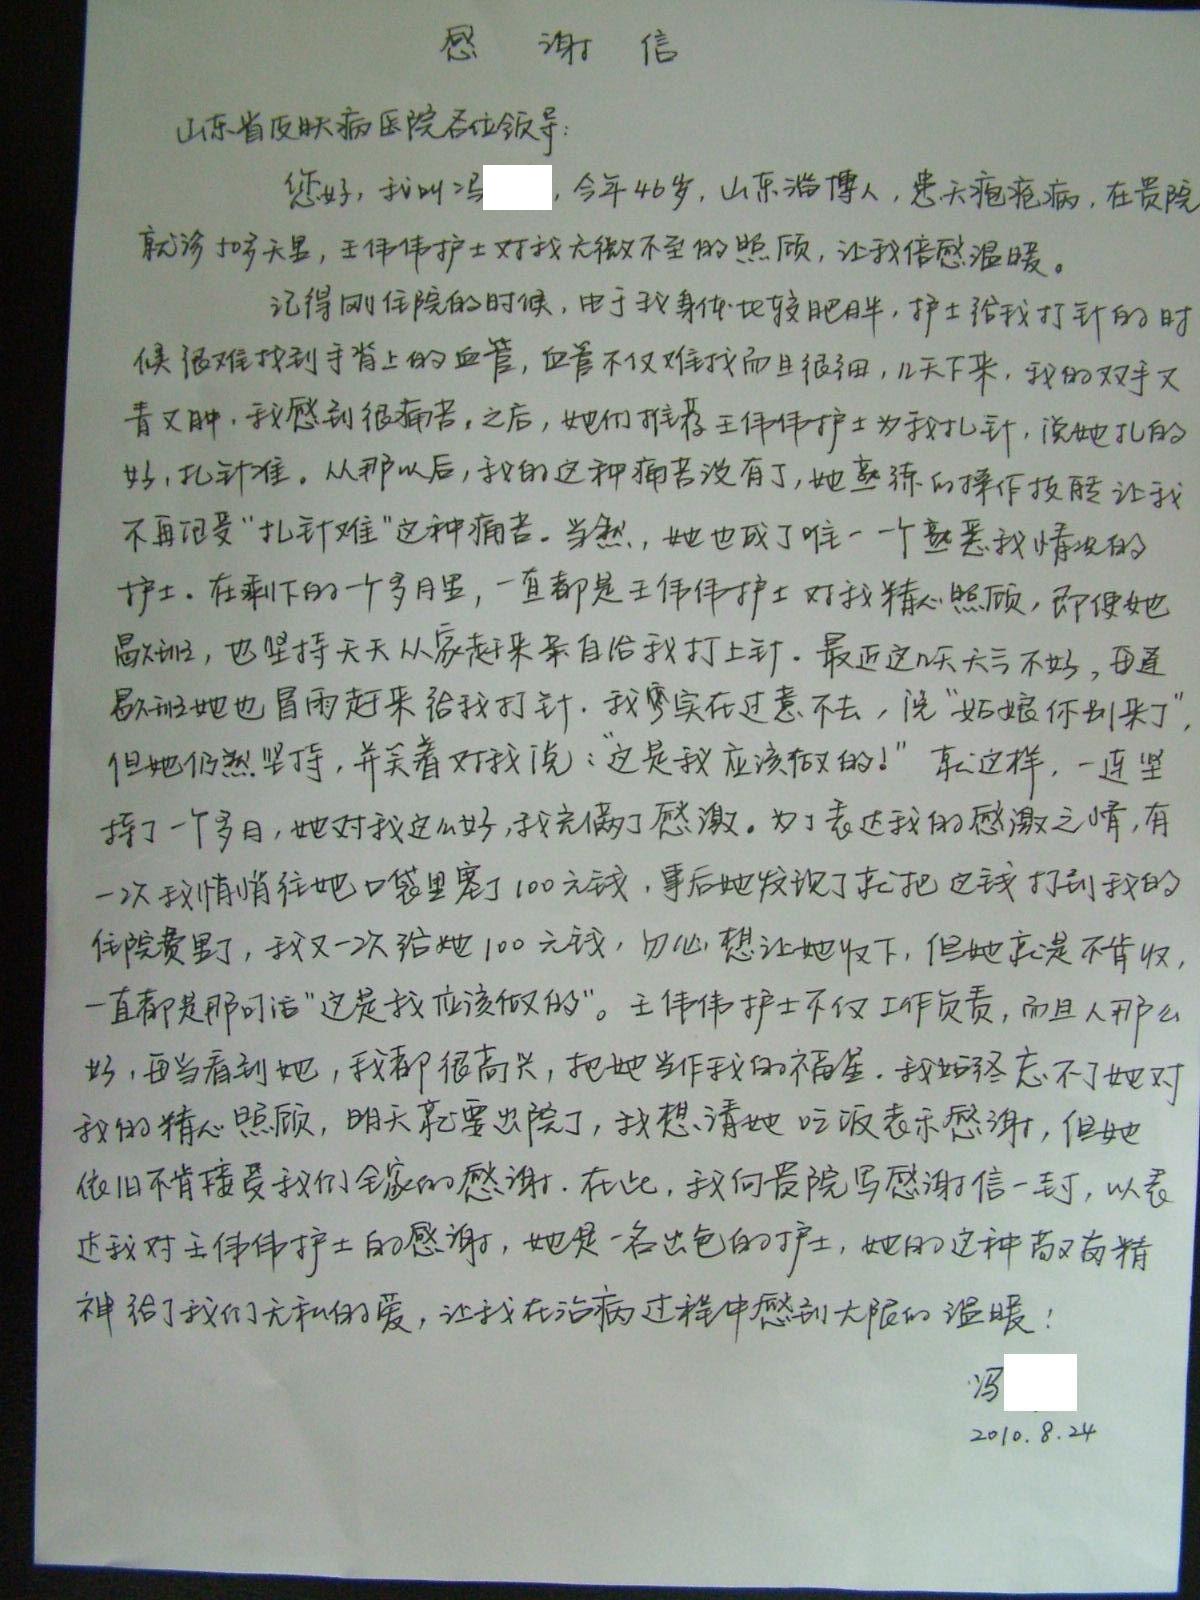 感 谢 信
山东省皮肤病医院各位领导:
您好，我叫冯，今年46岁，山东淄博人，患天疱疮病，在贵院
就诊50多天里，王伟伟护士对我无微不至的照顾，让我倍感温暖。
记得刚住院的时候，由于我身体比较肥胖，护士给我打针的时
候很难找到手背上的血管，血管不仅难找而且很细，几天下来，我的双手又
青又肿，我感到很痛苦。之后，她们推荐王伟伟护士为我扎针，说她扎的
好，扎针准。从那以后，我的这种痛苦没有了，她熟练的操作技能让我
不再忍受“扎针难”这种痛苦。当然，她也成了唯一一个熟悉我情况的
护士。在剩下的一个多月里，一直都是王伟伟护士对我精心照顾，即便她
歇班，也坚持天天从家赶来亲自给我打上针。最近这几天天气不好，每逢
歇班她也冒雨赶来给我打针。我实在过意不去，说“姑娘你别来了”，
但她仍然坚持，并笑着对我说：“这是我应该做的！”就这样，一连坚
持了一个多月，她对我这么好，我充满了感激。为了表达我的感激之情，有
一次我悄悄往她口袋里塞了100元钱，事后她发现了就把这钱打到我的
住院费里了，我又一次给她100元钱，一心想让她收下，但她就是不肯收，
一直都是那句话“这是我应该做的”。王伟伟护士不仅工作负责，而且人那么
好，每当看到她，我都很高兴，把她当作我的福星。我始终忘不了她对
我的精心照顾，明天就要出院了，我想请她吃饭表示感谢，但她
依旧不肯接受我们全家的感谢。在此，我向贵院写感谢信一封，以表
达我对王伟伟护士的感谢，她是一名出色的护士，她的这种高尚精
神给了我们无私的爱，让我在治病过程中感到无限的温暖！
冯
2010.8.24